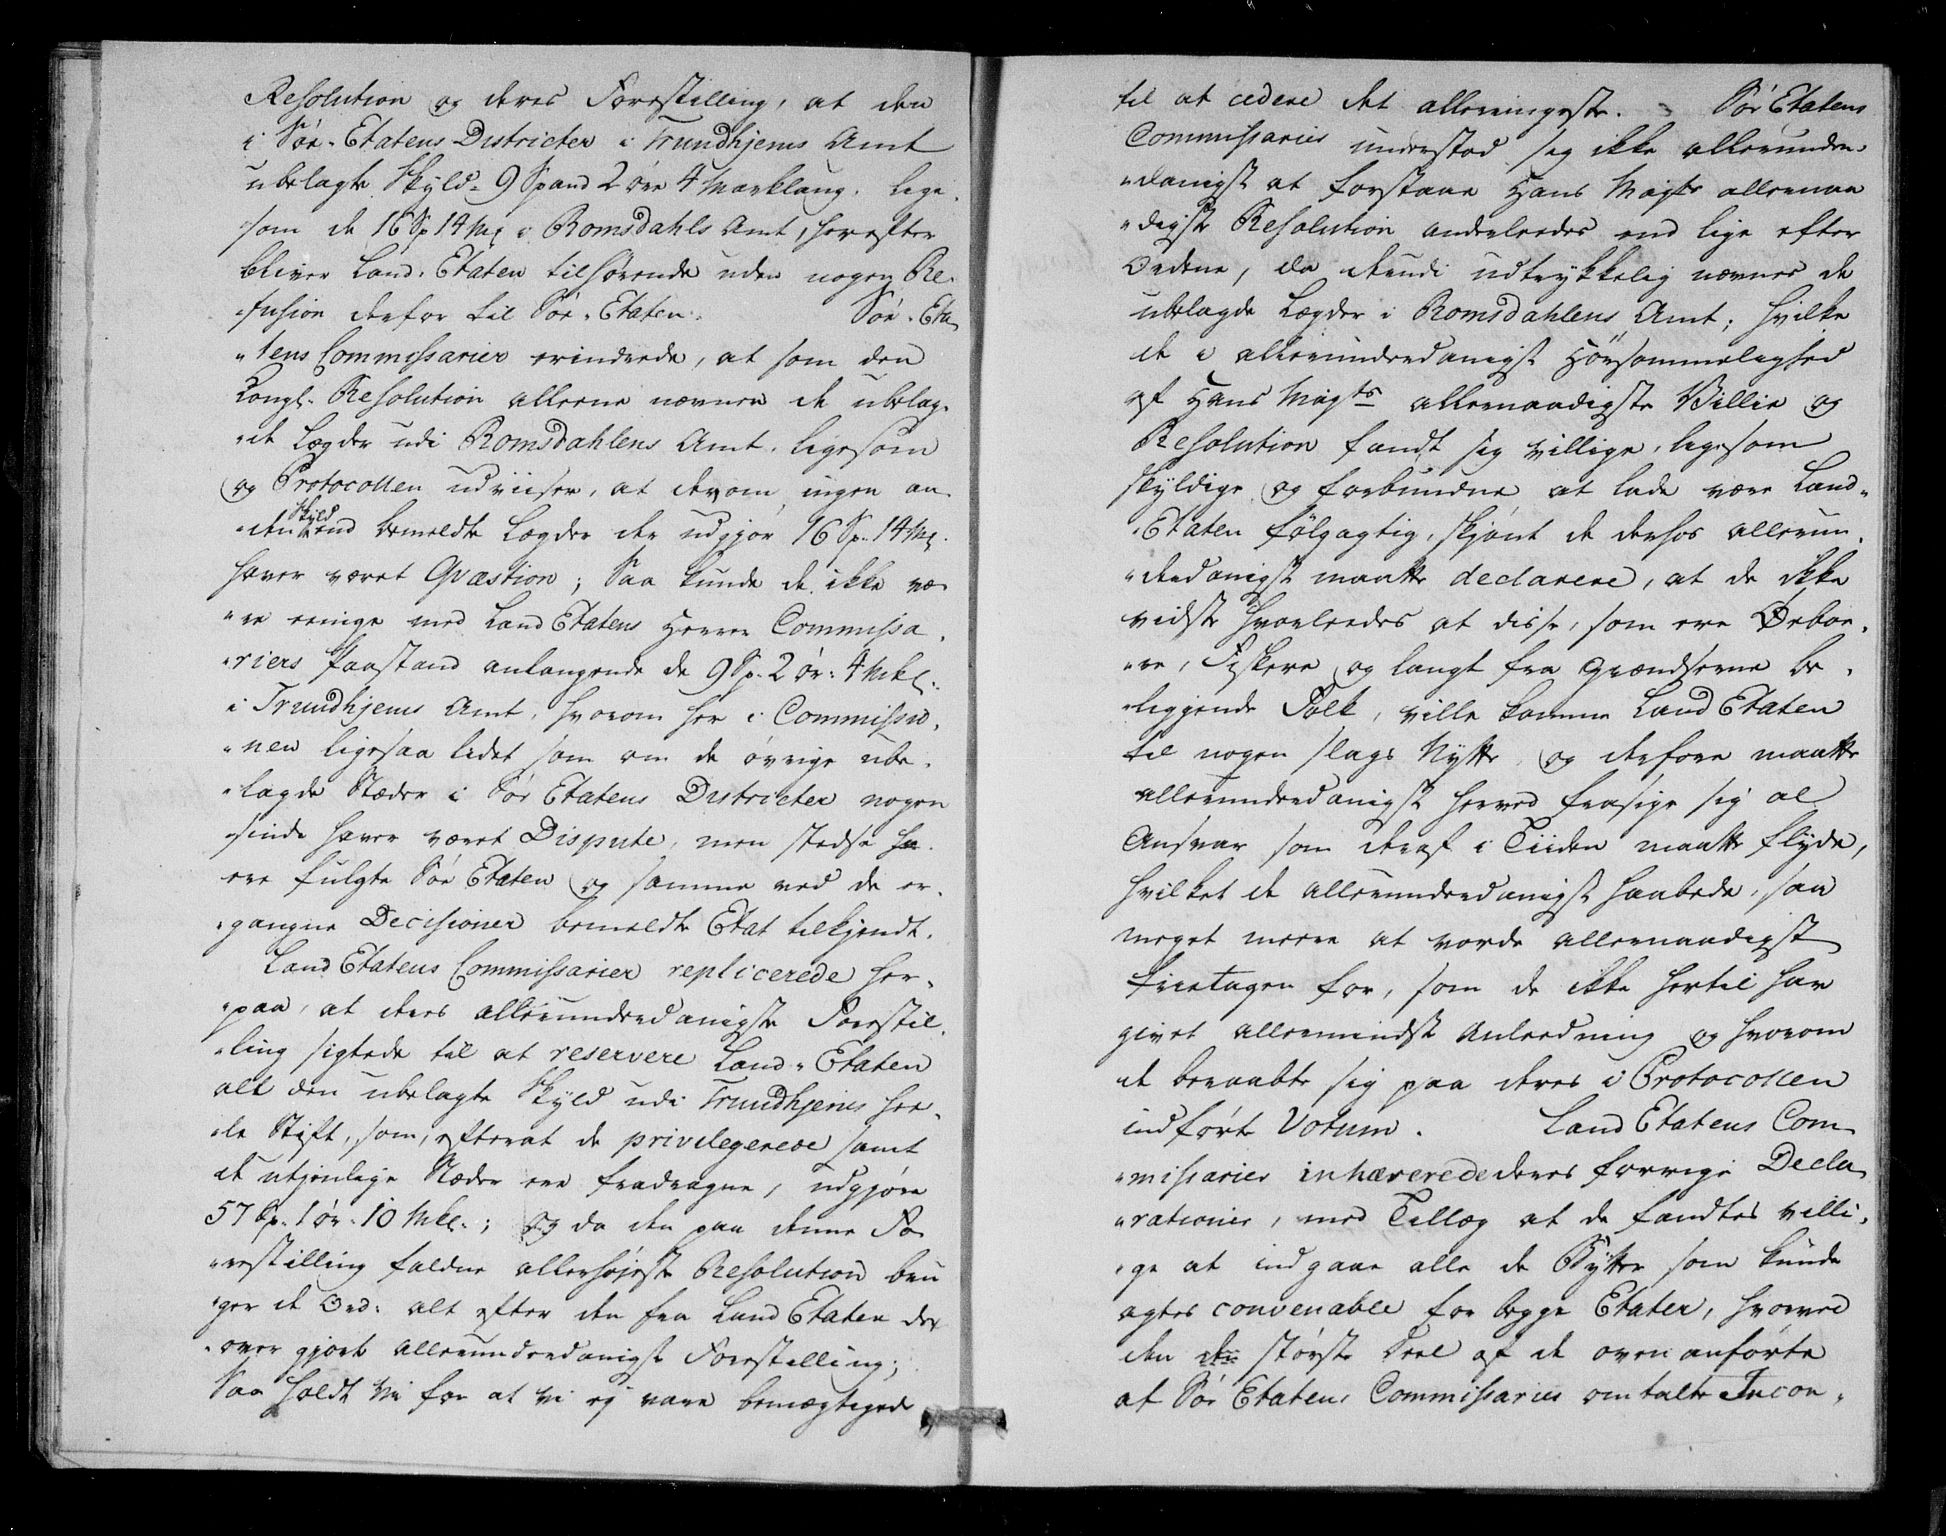 Resolution og deres Forestilling, at den
i Söe-Etatens Districter i Trundhjems Amt
ubelagte Skyld 9 Spand 2 öre 4 Marklaug. lige-
som de 16 Sp 14 Mk i Romsdahls Amt, herefter
bliver Land-Etaten tilhørende uden nogen Re-
„fusion derfor til Söe-Etaten. Söe-Eta-
„tens Commissarier erindrede, at som den
Kongl. Resolution alleene nævner de ubelag-
„de Lægder udi Romsdahlens Amt, ligesom
og Protocollen udviiser, at derom ingen an-
„den Skyld end bemeldte Lægder der udgjør 16 Sp. 14 Mk.
haver været Qvæstion; Saa kunde de ikke væ-
„re eenige med Land Etatens Herrer Commissa-
„riers Paastand anlangende de 9 Sp. 2 ör. 4 Mkl.
i Trundhjems Amt, hvorom her i Commissio-
„nen ligesaa lidet som om de övrige ube-
„lagde Stæder i Söe Etatens Districter nogen-
„sinde haver været Dispute, men stedse ha-
ere fulgte Söe Etaten og samme ved de er-
„gangne Decisioner bemeldte Etat tilkjendt.
Land Etatens Commissarier replicerede her-
„paa, at deres allerunderdanigste Forestil-
„ling sigtede til at reservere Land-Etaten
alt den ubelagte Skyld udi Trundhjems hee-
„le Stift, som, efterat de privilegerede samt
de utjenlige Stæder ere fradragne, udgjøre
57 Sp. 1 ör. 10 Mkl.; og da den paa denne Fo-
„restilling faldne allerhøjeste Resolution bru-
„ger de Ord: alt efter den fra Land Etaten der-
„over gjorte allerunderdanigste Forestilling;
Saa holdt vi for at vi ej vare bemægtigede
til at cedere det allerringeste. Söe Etatens
Commissarier understod sig ikke allerunder-
„danigst at forstaae Hans Majts allernaa-
„digste Resolution anderledes end lige efter
Ordene, da derudi udtrykkelig nævnes de
ubelagde Lægder i Romsdahlens Amt; hvilke
de i allerunderdanigst Hörsommelighed
af Hans Majts allernaadigste Villie og
Resolution fandt sig villige, ligesom
skyldige og forbundne at lade være Land-
„Etaten fölgagtig, skjönt de derhos allerun-
„derdanigst maatte declarere, at de ikke
vidste hvorledes at disse, som ere Öeboe-
„re, Fiskere og langt fra Grændserne be-
„liggende Folk, ville komme Land Etaten
til nogen slags Nytte, og derfore maatte
allerunderdanigst herved frasige sig al
Ansvar som deraf i Tiiden maatte flyde,
hvilket de allerunderdanigst haabede, saa
meget meere at vorde allernaadigst
fritagen for, som de ikke hertil har
givet allermindste Anledning og hvorom
de beraabte sig paa deres i Protocollen
indförte Votum. Land Etatens Com-
„missarier inhærerede deres forrige Decla-
„rationer, med Tillæg at de fandtes villi-
„ge at indgaae alle de Bytter som kunde
agtes convenable for begge Etater, hvorved
den störste Deel af de oven anförte
af Söe Etatens Commissarier omtalte Incon-